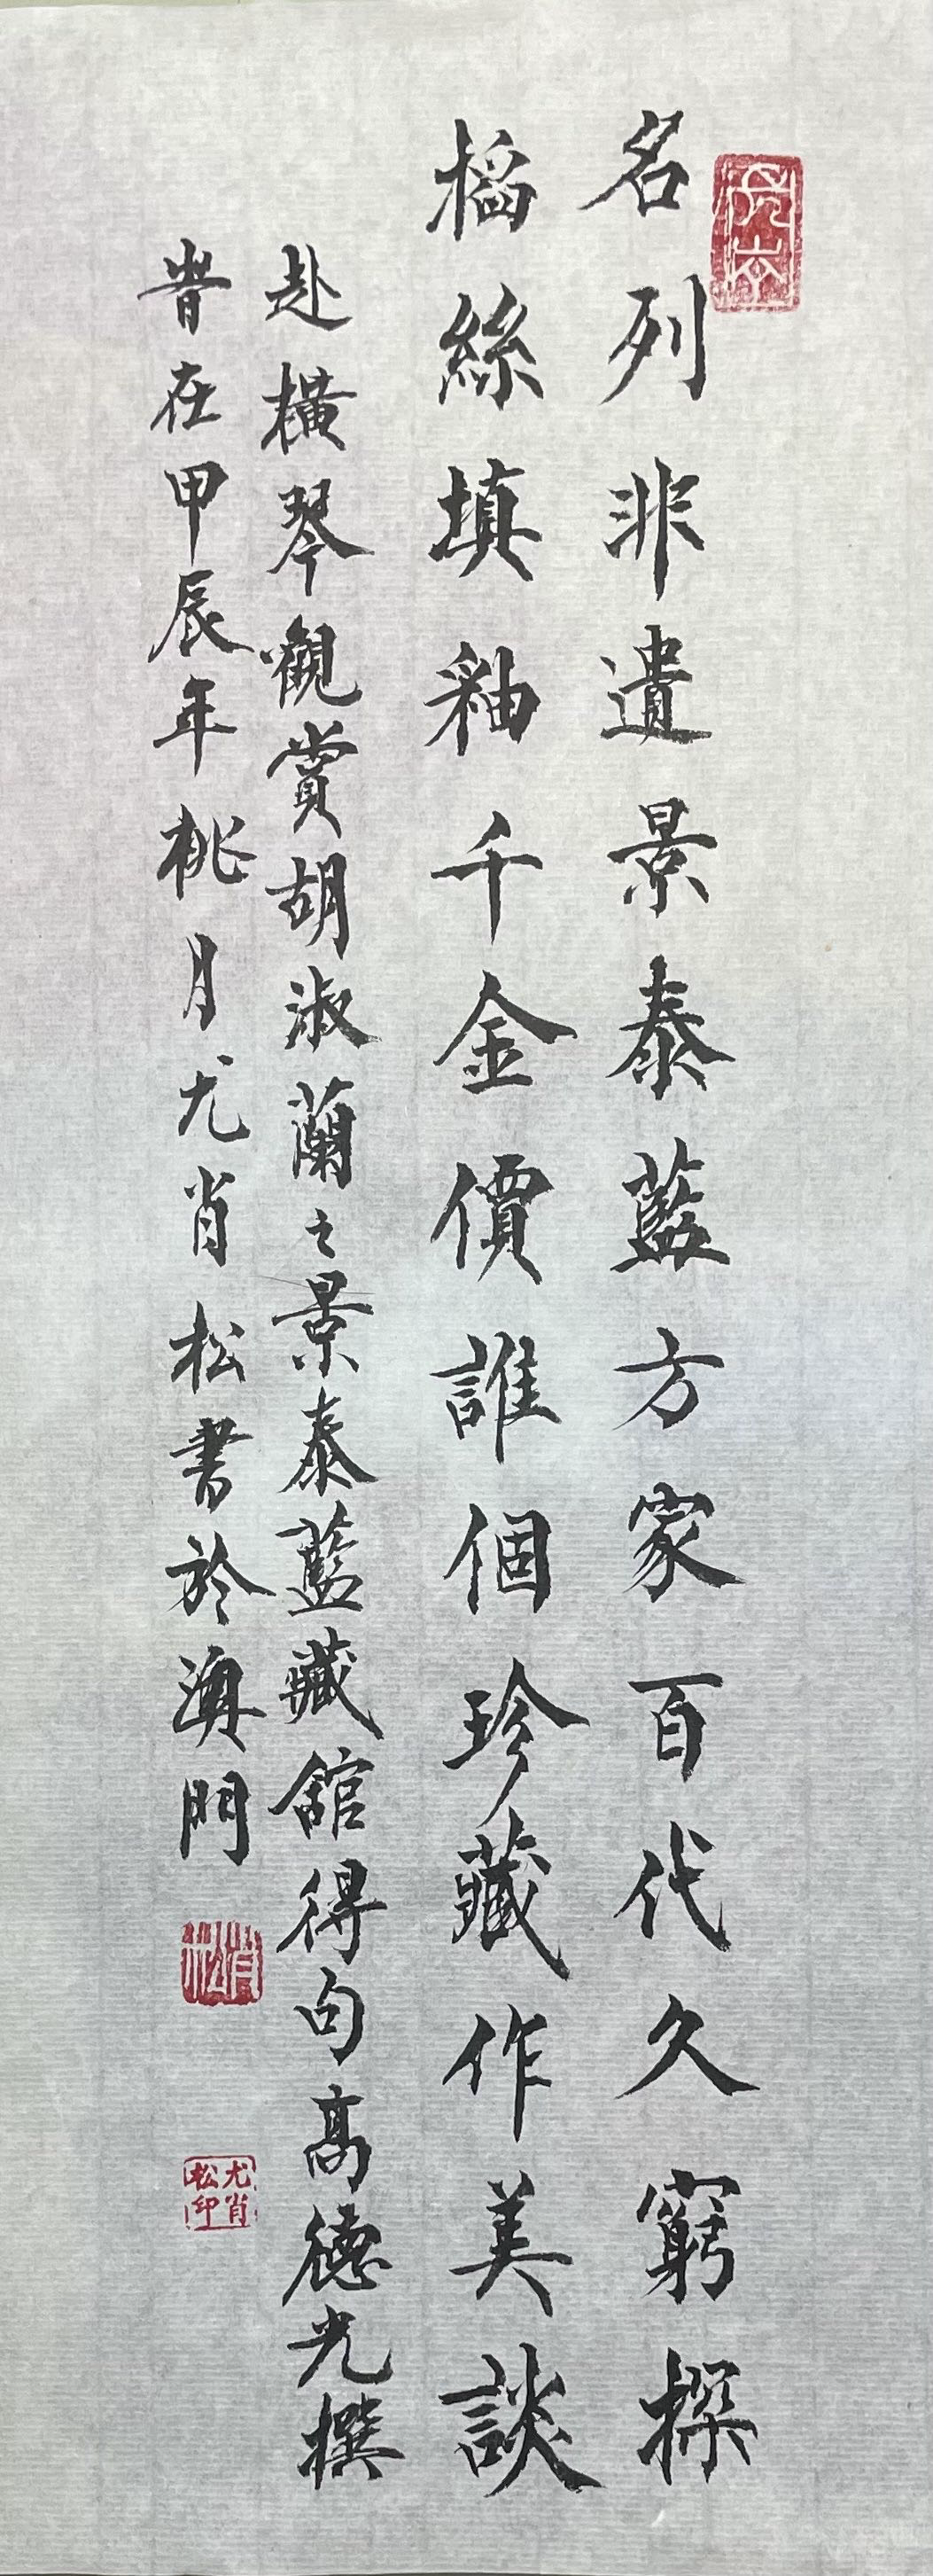 名列非遺景泰藍方家百代久窮探
掐絲填釉千金價誰個珍藏作美談
赴橫琴觀賞胡淑蘭之景泰藍藏舘得句高德光撰
旹在甲辰年桃月尤肖松書於澳門
肖松
尤肖松印